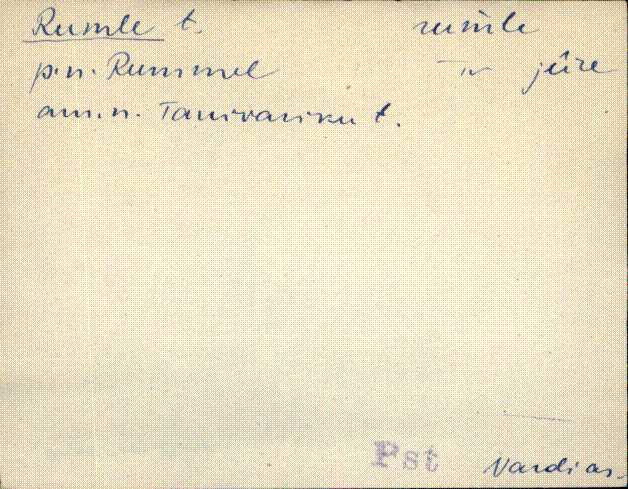 Rumle t. rumle
p.n. Rummel IV jüre
am.n. Tanivariku t.
Pst Vardi as.